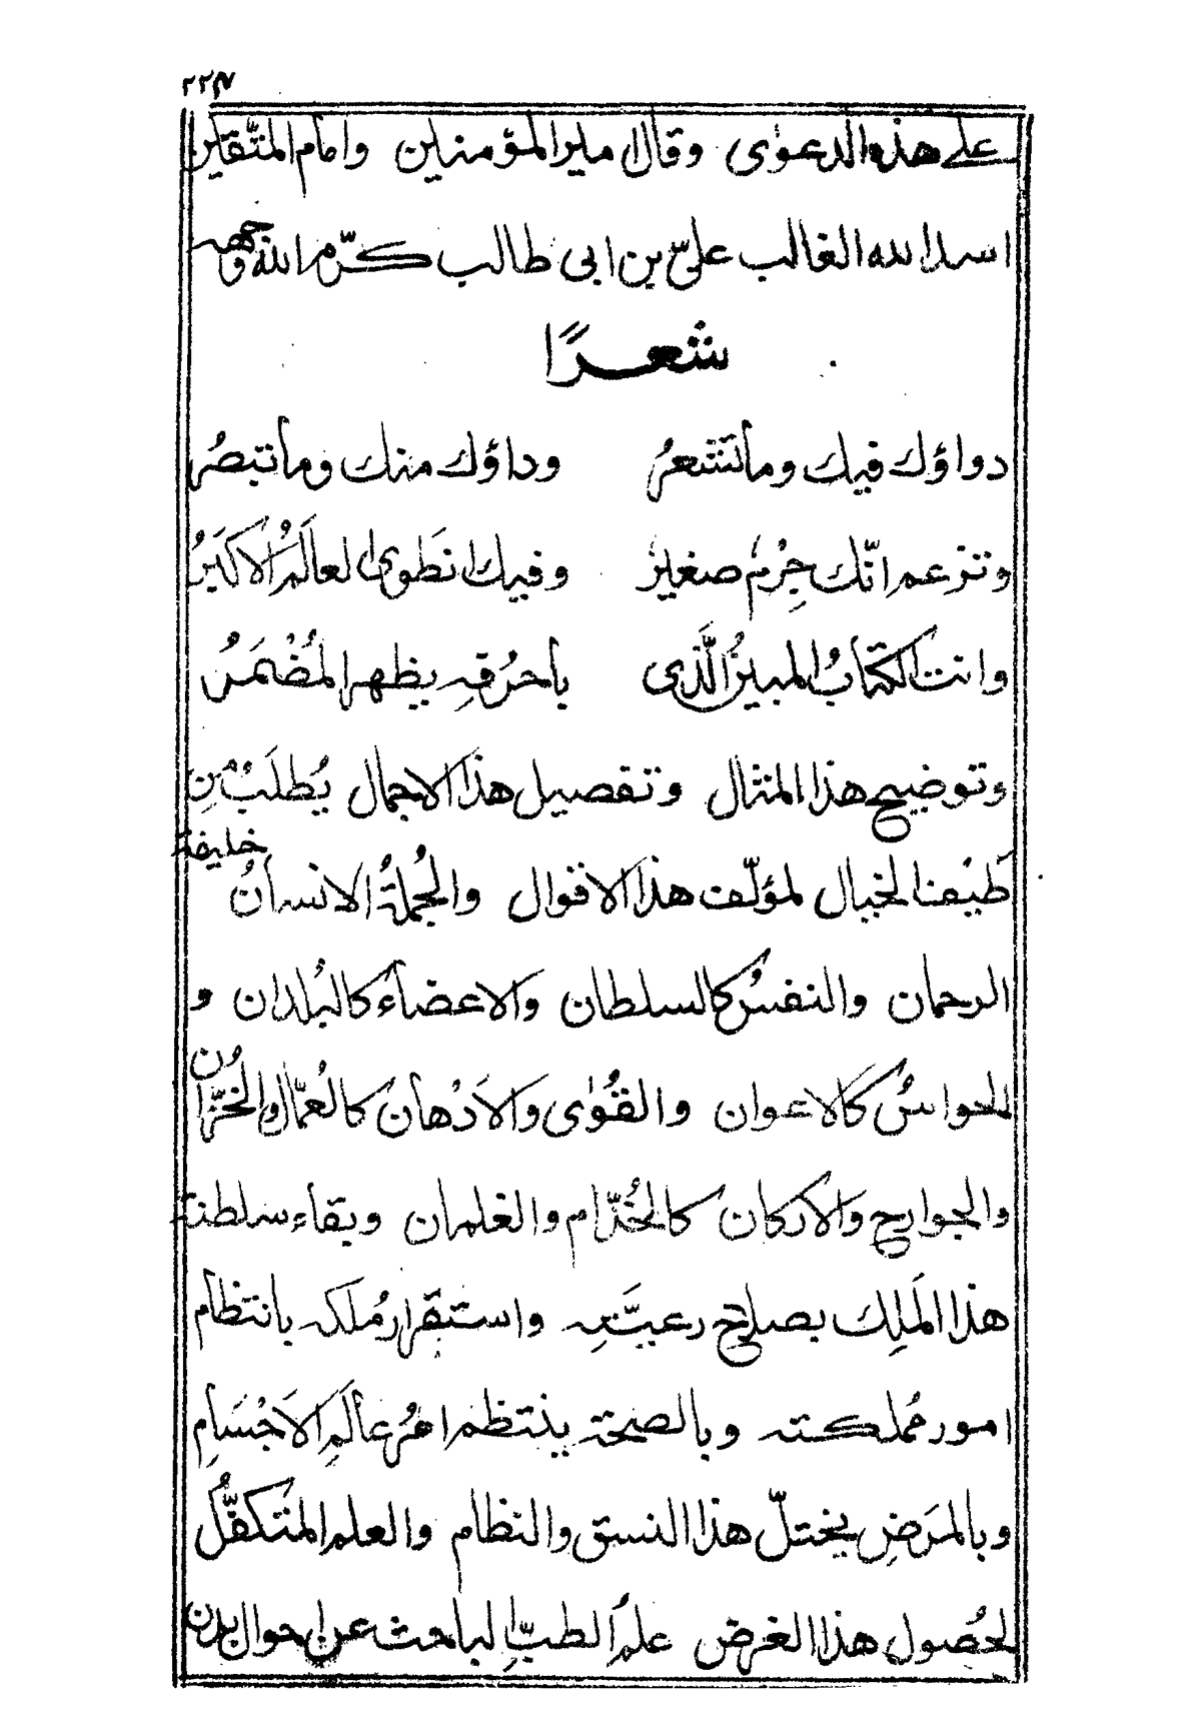 ٢٢٧
على هذه الدعوٰى وقال امير المؤمنين وامام المتّقين
اسد الله الغالب علىّ بن ابى طالب كرّم الله وجهه
شعرًا
دواؤك فيك وما تشعرُ وداؤك منك وما تبصرُ
وتزعم انّك جِرْمٌ صغيرٌ وفيك انطَوى العالَمُ الاكبَرُ
وانت الكتابُ المبينُ الَّذى باحرُفِه يظهر المُضْمَرُ
وتوضيح هذا المثال وتفصيل هذا الاجمال يُطلَبُ مِن
طَيْف الخيال لمؤلّف هذا الاقوال والجُملةُ الانسانُ خليفة
الرحمان والنفسُ كالسلطان والاعضاءُ كالبُلدان و
الحواسُ كالاعوان والقُوٰى والاَذْهانُ كالعُمّال والخُزّان
والجوارح والاركان كالخُدّام والغلمان وبقاء سلطنة
هذا المَلِك بصلاح رعيّتِه واستقرار مُلكه بانتظام
امور مملكته وبالصحّة ينتظم امرُ عالَمِ الاَجْسَامِ
وبالمَرَضِ يختلّ هذا النسق والنظام والعلم المتكفّلُ
لحُصول هذا الغرض علمُ الطبِّ الباحث عن احوال بدن